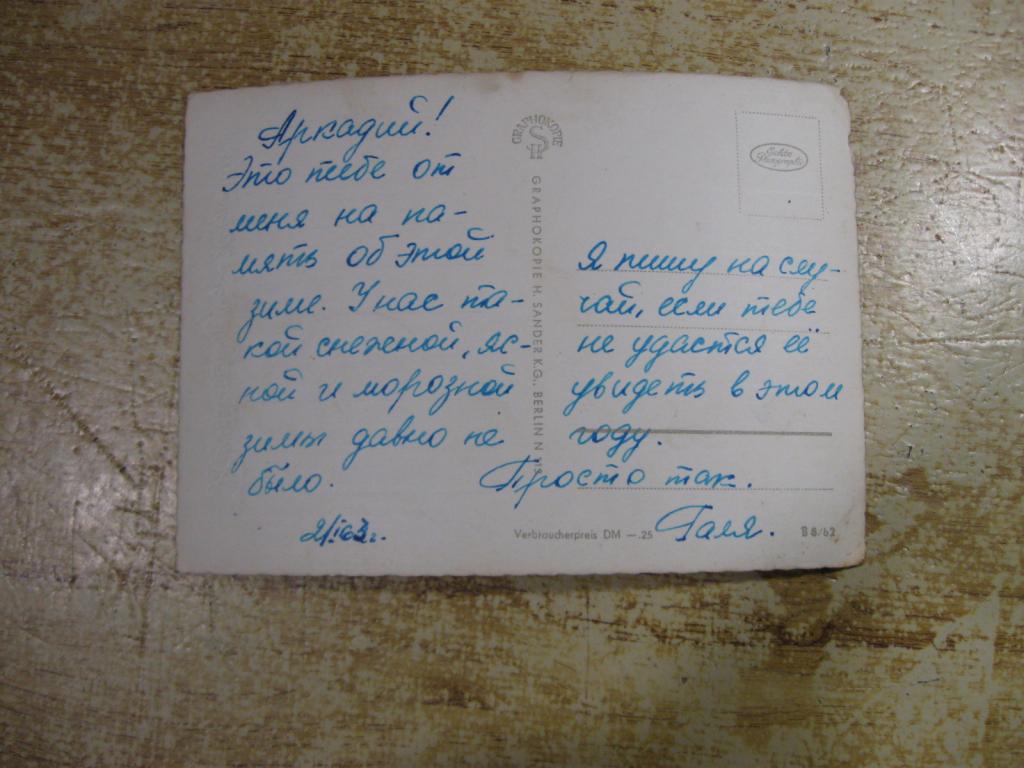 Аркадий!
Это тебе от
меня на па-
мять об этой
зиме. У нас та-
кой снежной, яс-
ной и морозной
зимы давно не
было.
GRAPHOKOPIE
GRAPHOKOPIE H. SANDER K.G., BERLIN N
Echte
Photographie
Я пишу на слу-
чай, если тебе
не удастся её
увидеть в этом
году.
Просто так.
Галя.
Verbraucherpreis DM —.25
B 8/62